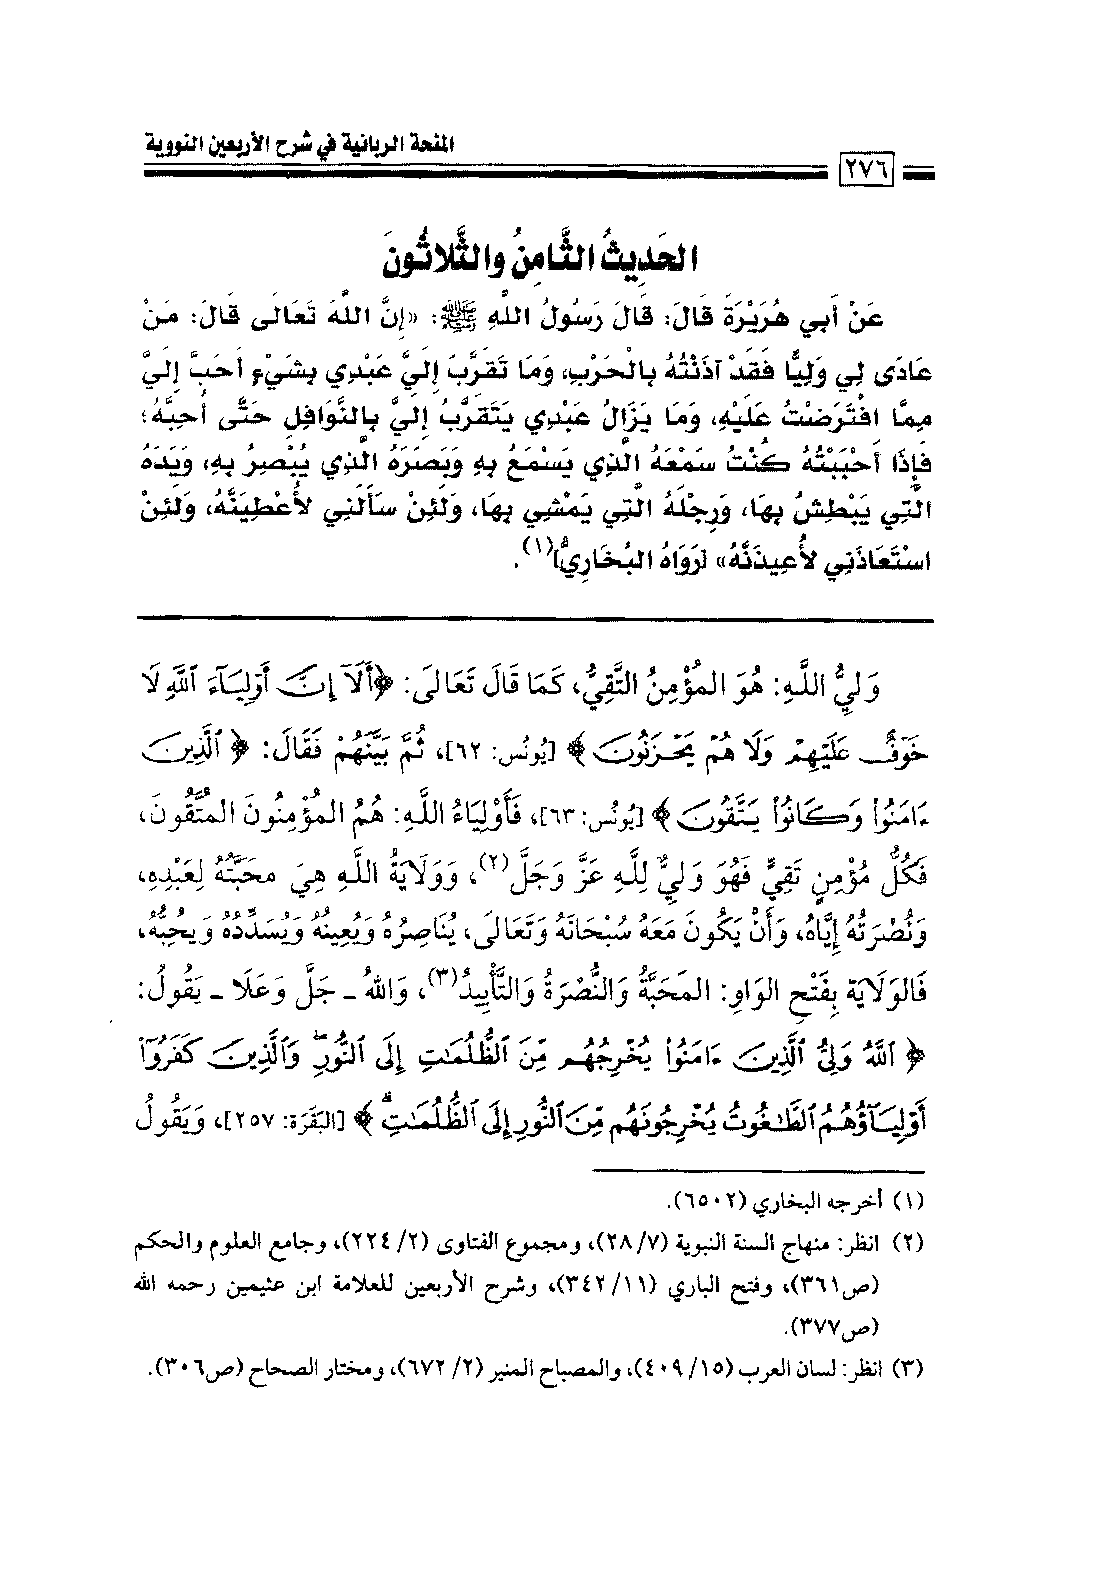 المنحة الربانية في شرح الأربعين النووية
٢٧٦
الحَدِيثُ الثَّامِنُ والثَّلاثُونَ
عَنْ أَبي هُرَيْرَةَ قَالَ: قَالَ رَسُولُ اللهِ ﷺ: «إِنَّ اللهَ تَعَالَى قَالَ: مَنْ
عَادَى لِي وَلِيًّا فَقَدْ آذَنْتُهُ بِالْحَرْبِ، وَمَا تَقَرَّبَ إِلَيَّ عَبْدِي بِشَيْءٍ أَحَبَّ إِلَيَّ
مِمَّا افْتَرَضْتُ عَلَيْهِ، وَمَا يَزَالُ عَبْدِي يَتَقَرَّبُ إِليَّ بِالنَّوَافِلِ حَتَّى أُحِبَّهُ؛
فَإِذَا أَحْبَبْتُهُ كُنْتُ سَمْعَهُ الَّذِي يَسْمَعُ بِهِ وَبَصَرَهُ الَّذِي يُبْصِرُ بِهِ، وَيَدَهُ
الَّتِي يَبْطِشُ بِهَا، وَرِجْلَهُ الَّتِي يَمْشِي بِهَا، وَلَئِنْ سَأَلَنِي لأُعْطِيَنَّهُ، وَلَئِنْ
اسْتَعَاذَنِي لأُعِيذَنَّهُ» [رَوَاهُ البُخَارِيُّ](١).
وَلِيُّ اللَّهِ: هُوَ المُؤْمِنُ التَّقِيُّ، كَمَا قَالَ تَعَالَى: ﴿أَلَآ إِنَّ أَوْلِيَآءَ ٱللَّهِ لَا
خَوْفٌ عَلَيْهِمْ وَلَا هُمْ يَحْزَنُونَ﴾ [يُونُس: ٦٢]، ثُمَّ بَيَّنَهُمْ فَقَالَ: ﴿ٱلَّذِينَ
ءَامَنُوا۟ وَكَانُوا۟ يَتَّقُونَ﴾ [يُونُس: ٦٣]، فَأَوْلِيَاءُ اللَّهِ: هُمُ المُؤْمِنُونَ المُتَّقُونَ،
فَكُلُّ مُؤْمِنٍ تَقِيٍّ فَهُوَ وَلِيٌّ لِلَّهِ عَزَّ وَجَلَّ(٢)، وَوَلَايَةُ اللَّهِ هِيَ مَحَبَّتُهُ لِعَبْدِهِ،
وَنُصْرَتُهُ إِيَّاهُ، وَأَنْ يَكُونَ مَعَهُ سُبْحَانَهُ وَتَعَالَى، يُنَاصِرُهُ وَيُعِينُهُ وَيُسَدِّدُهُ وَيُحِبُّهُ،
فَالوَلَايَة بِفَتْحِ الوَاوِ: المَحَبَّةُ وَالنُّصْرَةُ وَالتَّأْيِيدُ(٣)، وَاللهُ ـ جَلَّ وَعَلَا ـ يَقُولُ:
﴿ٱللَّهُ وَلِىُّ ٱلَّذِينَ ءَامَنُوا۟ يُخْرِجُهُم مِّنَ ٱلظُّلُمَٰتِ إِلَى ٱلنُّورِ ۖ وَٱلَّذِينَ كَفَرُوٓا۟
أَوْلِيَآؤُهُمُ ٱلطَّٰغُوتُ يُخْرِجُونَهُم مِّنَ ٱلنُّورِ إِلَى ٱلظُّلُمَٰتِ ۗ﴾ [البَقَرَة: ٢٥٧]، وَيَقُولُ
(١) أخرجه البخاري (٦٥٠٢).
(٢) انظر: منهاج السنة النبوية (٢٨/٧)، ومجموع الفتاوى (٢/ ٢٢٤)، وجامع العلوم والحكم
(ص٣٦١)، وفتح الباري (١١/ ٣٤٢)، وشرح الأربعين للعلامة ابن عثيمين رحمه الله
(ص٣٧٧).
(٣) انظر: لسان العرب (١٥/ ٤٠٩)، والمصباح المنير (٢/ ٦٧٢)، ومختار الصحاح (ص٣٠٦).